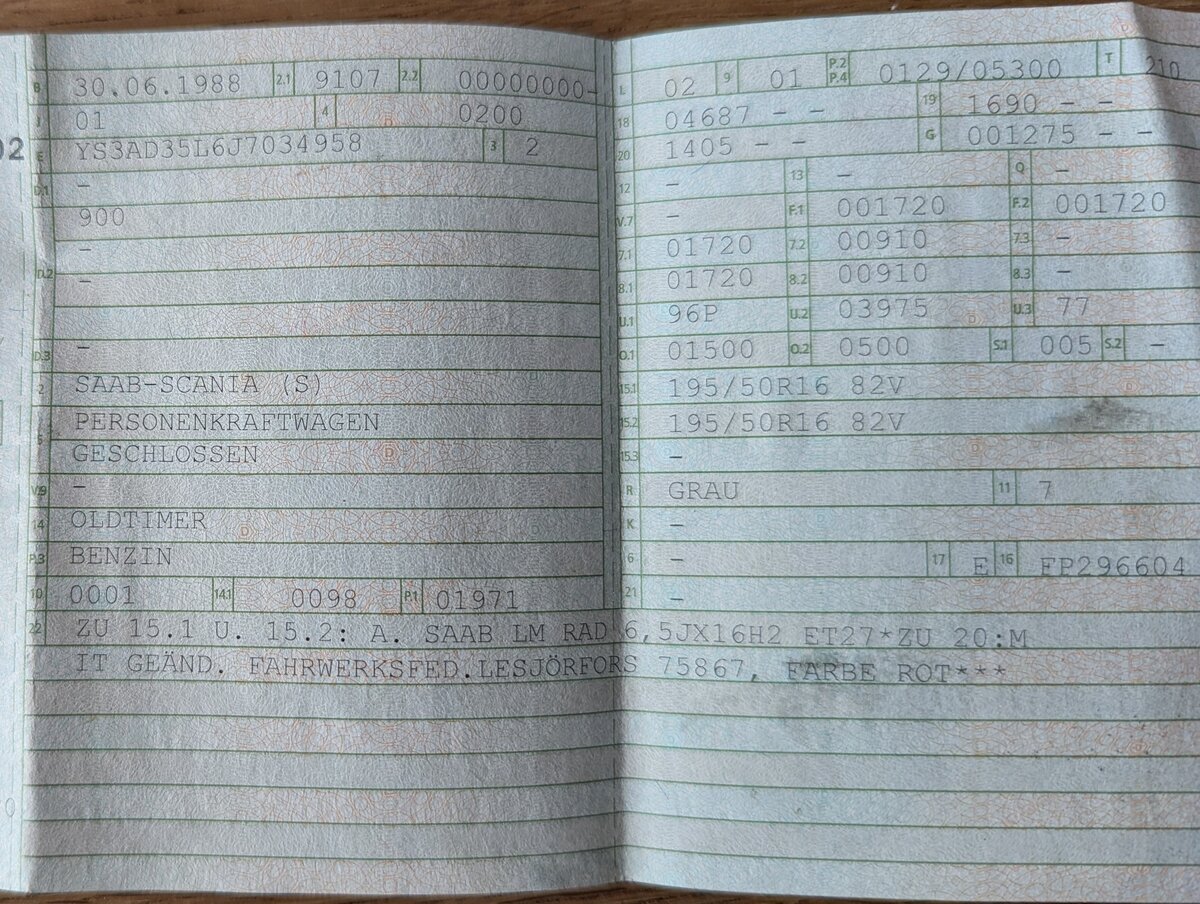 B 30.06.1988 2.1 9107 2.2 00000000-
J 01 4 0200
02
E YS3AD35L6J7034958 3 2
D.1 -
900
-
D.2 -
D.3 -
2 SAAB-SCANIA (S)
PERSONENKRAFTWAGEN
5 GESCHLOSSEN
V.9 -
14 OLDTIMER
P.3 BENZIN
10 0001 14.1 0098 P.1 01971
L 02 9 01 P.2 P.4 0129/05300 T 210
18 04687 - - 19 1690 - -
20 1405 - - G 001275 - -
12 - 13 - Q -
V.7 - F.1 001720 F.2 001720
7.1 01720 7.2 00910 7.3 -
8.1 01720 8.2 00910 8.3 -
U.1 96P U.2 03975 U.3 77
O.1 01500 O.2 0500 S.1 005 S.2 -
15.1 195/50R16 82V
15.2 195/50R16 82V
15.3 -
R GRAU 11 7
K -
6 - 17 E 16 FP296604
21 -
22 ZU 15.1 U. 15.2: A. SAAB LM RAD 6,5JX16H2 ET27*ZU 20:M
IT GEÄND. FAHRWERKSFED.LESJÖRFORS 75867, FARBE ROT***